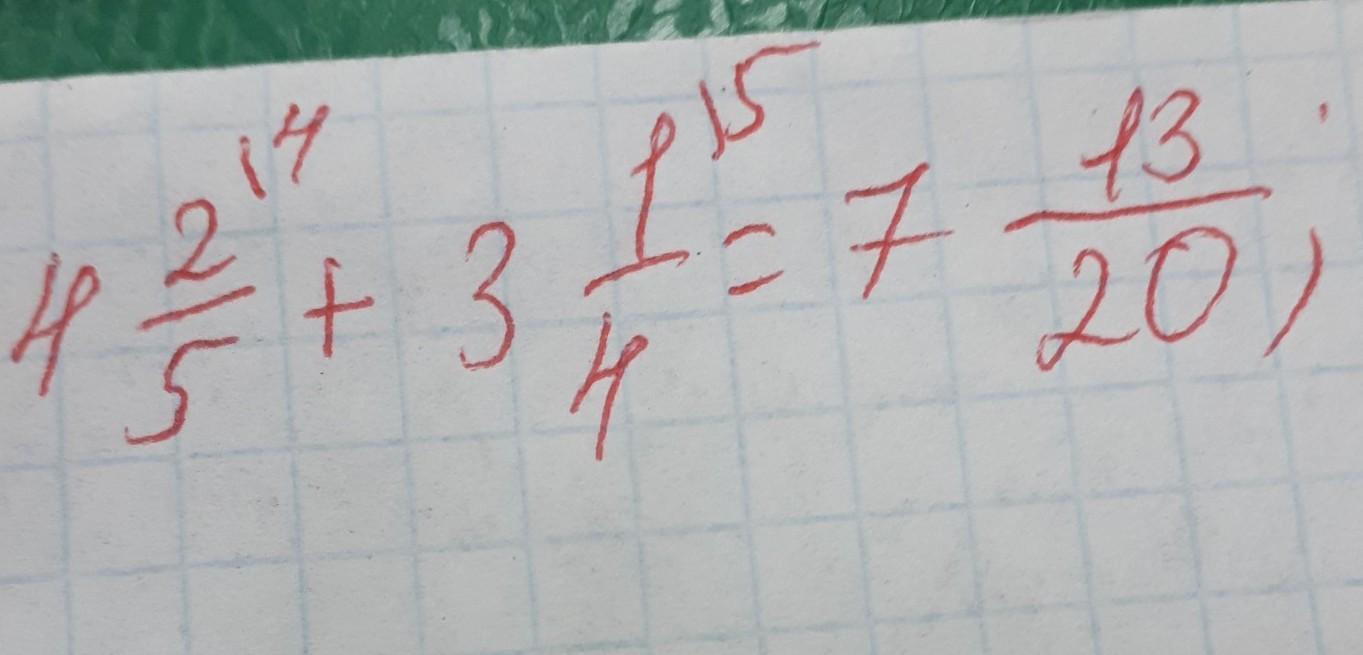 4 2/5 \4 + 3 1/4 \5 = 7 13/20 ;